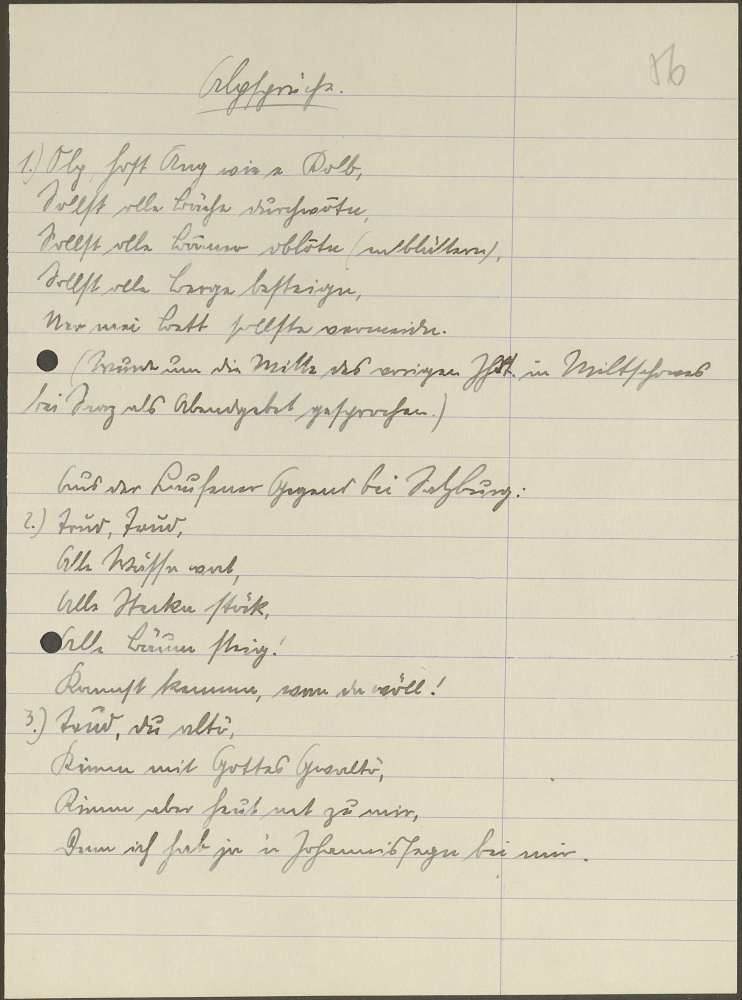 86
Alpsprüche.
1.) Olp, host Aug wie a Kolb,
Sollst olle Bäche durchwōtn,
Sollst olle Bāmer oblōtn (entblättern),
Sollst olle Berge besteign,
Ner mei Bett sollste vermeidn.
(Wurde um die Mitte des vorigen Jhdt. in Miltschowes
bei Saaz als Abendgebet gesprochen.)
Aus der Laufener Gegend bei Salzburg:
2.) Trud, Trud,
Alle Wässa wat,
Alle Stecka stöck,
Alle Bāum steig!
Kannst kemma, wan du wöll!
3.) Trud, du altō,
Kimm mit Gottes Gwaltō,
Kimm aber heut net zu mir,
Denn ich hab ja 'n Johannissegn bei mir.